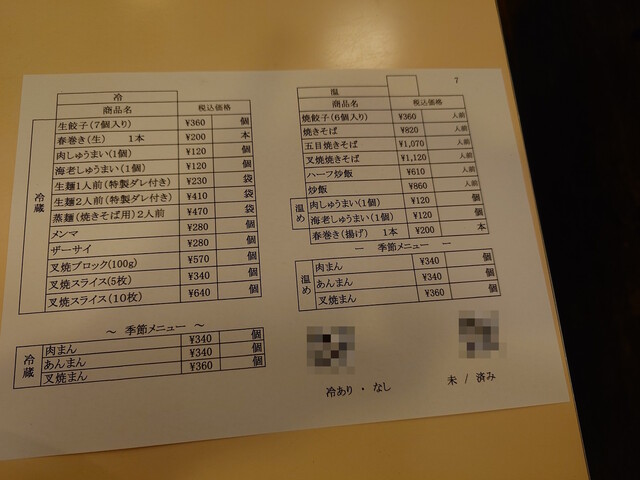 冷
商品名 税込価格
冷蔵
生餃子(7個入り) ¥360 個
春巻き(生) 1本 ¥200 本
肉しゅうまい(1個) ¥120 個
海老しゅうまい(1個) ¥120 個
生麺1人前(特製ダレ付き) ¥230 袋
生麺2人前(特製ダレ付き) ¥410 袋
蒸麺(焼きそば用)2人前 ¥470 袋
メンマ ¥280 個
ザーサイ ¥280 個
叉焼ブロック(100g) ¥570 個
叉焼スライス(5枚) ¥340 個
叉焼スライス(10枚) ¥640 個
～ 季節メニュー ～
冷蔵
肉まん ¥340 個
あんまん ¥340 個
叉焼まん ¥360 個
7
温
商品名 税込価格
焼餃子(6個入り) ¥360 人前
焼きそば ¥820 人前
五目焼きそば ¥1,070 人前
叉焼焼きそば ¥1,120 人前
ハーフ炒飯 ¥610 人前
炒飯 ¥860 人前
温め
肉しゅうまい(1個) ¥120 個
海老しゅうまい(1個) ¥120 個
春巻き(揚げ) 1本 ¥200 本
― 季節メニュー ―
温め
肉まん ¥340 個
あんまん ¥340 個
叉焼まん ¥360 個
冷あり ・ なし
未 / 済み